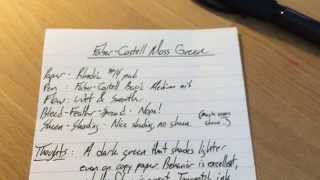 Faber-Castell Moss Green
Paper - Rhodia #18 pad
Pen : Faber-Castell Basic Medium nib
Flow - Wet & Smooth
Bleed-Feather-Spread - Nope!
Sheen - Shading - Nice shading, no sheen
Thoughts : A dark green that shades lighter
even on copy paper. Behavior is excellent,